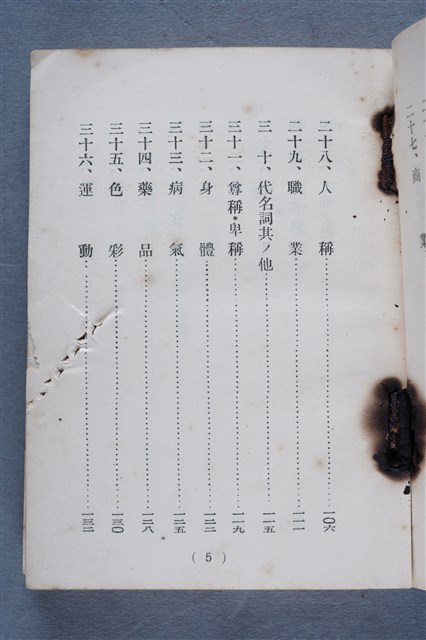 二十七、商業
二十八、人稱……一〇六
二十九、職業……一一一
三十、代名詞其ノ他……一一五
三十一、尊稱・卑稱……一一九
三十二、身體……一二二
三十三、病氣……一二五
三十四、藥品……一二八
三十五、色彩……一三〇
三十六、運動……一三二
(5)